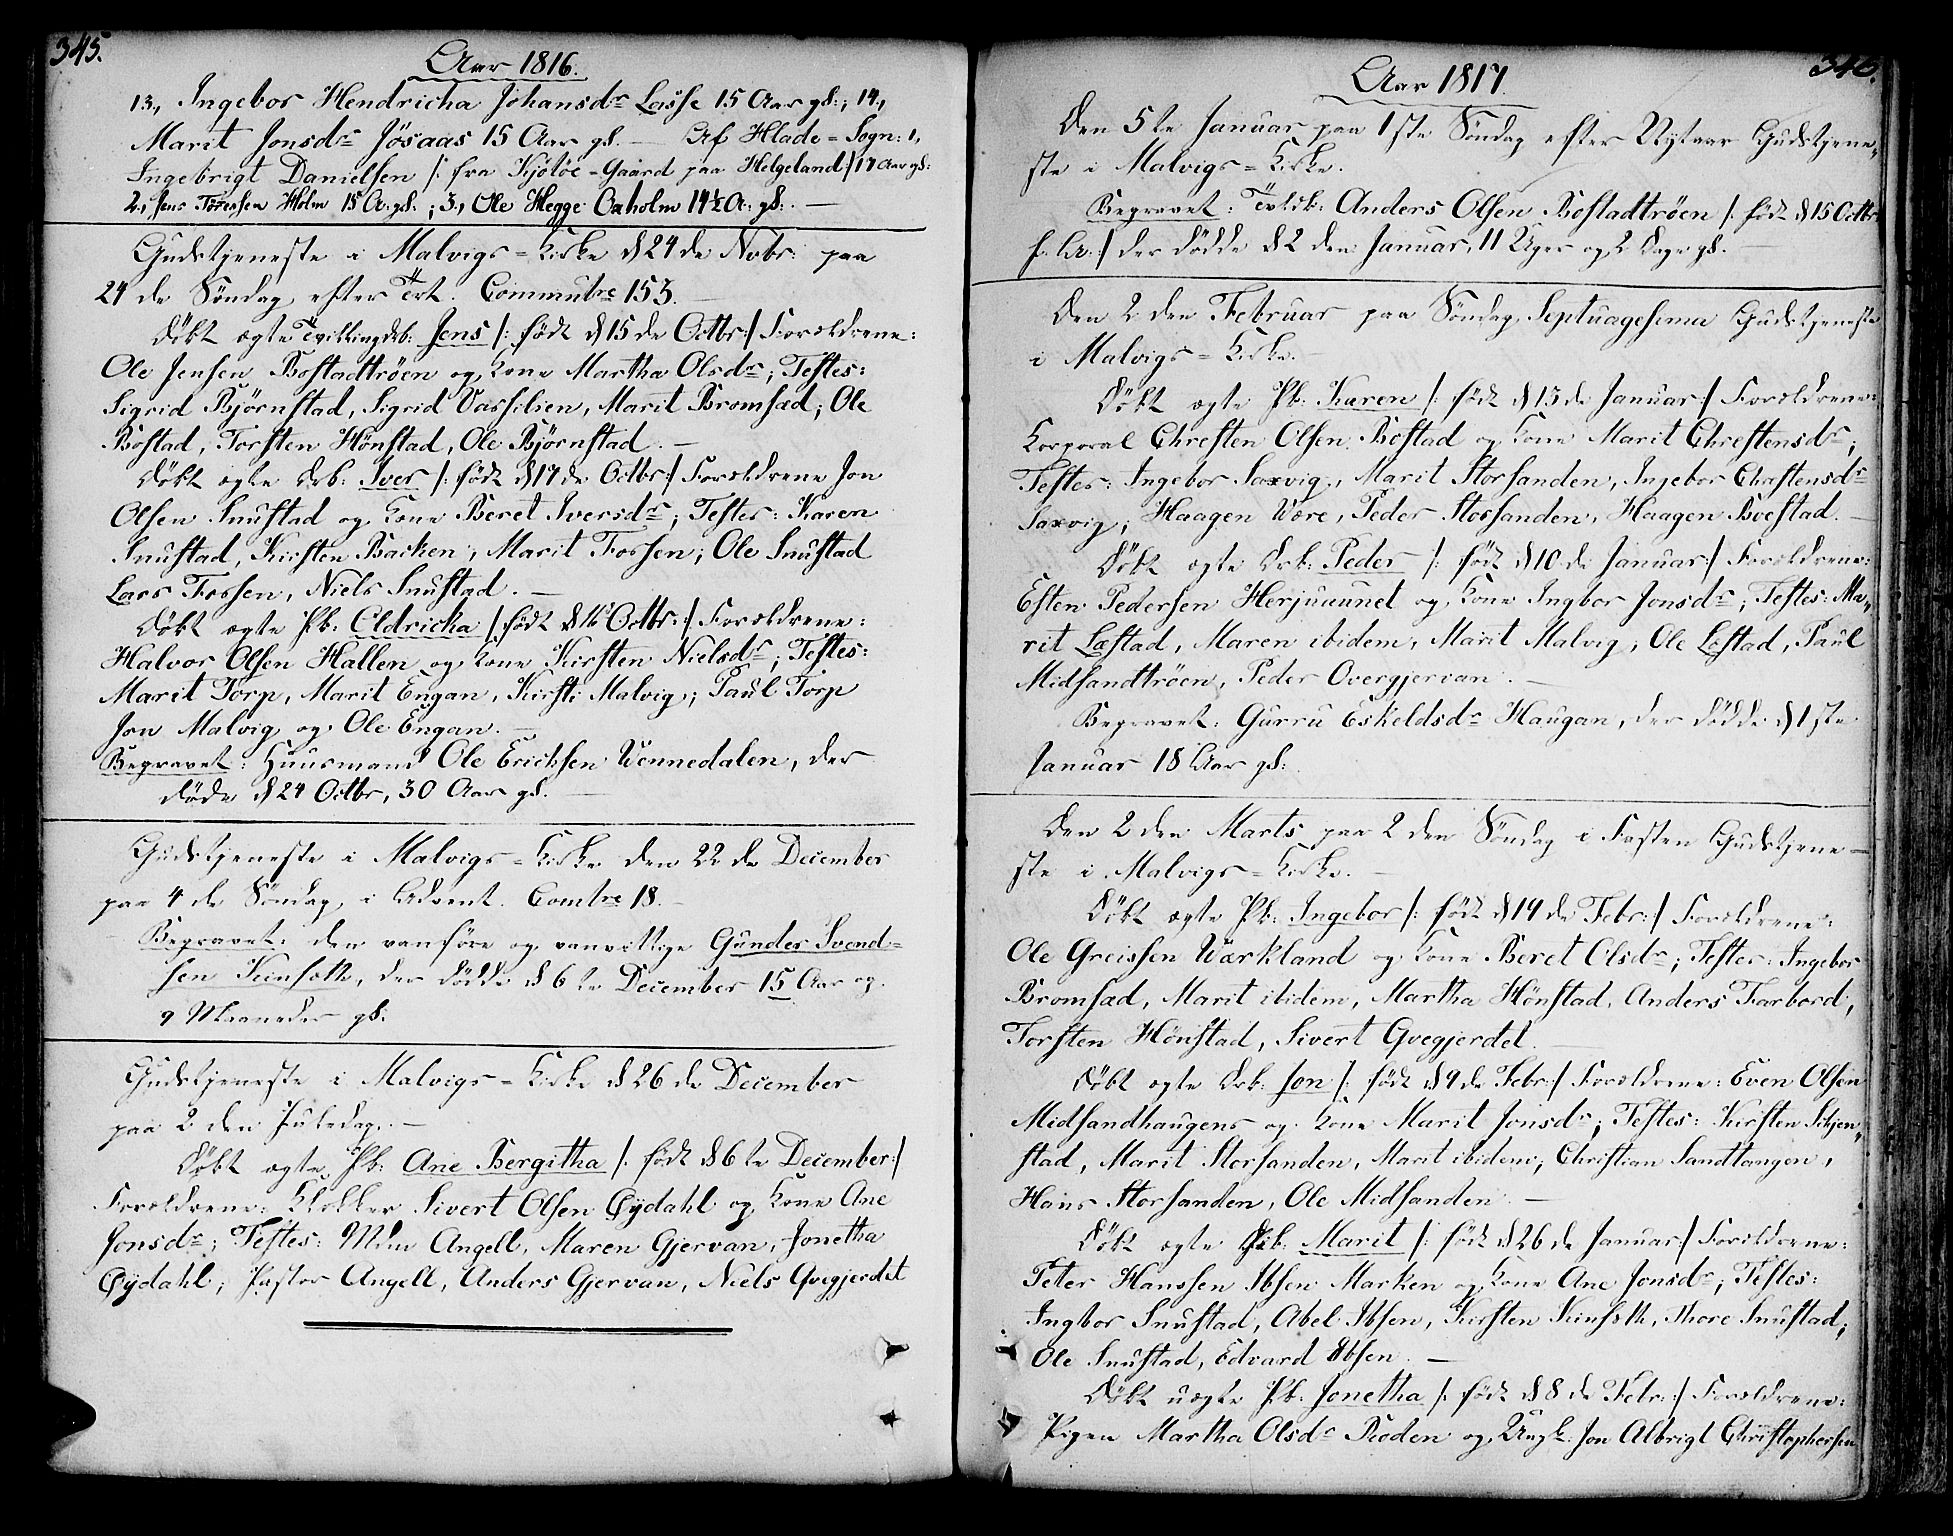 345.
Aar 1816.
13., Ingebor Hendricha Johansdr Lasse 15 Aar gl:, 14.,
Marit Jonsdr Jösaas 15 Aar gl. — Af Hlade = Sogn: 1,
Ingebrigt Danielsen /: fra Kjölöe-Gaard paa Helgeland:/ 17 Aar gl:
2., Jens Töresen Holm 15 A. gl. ; 3., Ole Hegge Oxholm 14½ A: gl: —
Gudstjeneste i Malvigs = Kirke d 24 de Novbr: paa
24 de Söndag efter Trt. Commutre 153. —
Döbt ægte Tvillingdrb: Jens /: födt d 15 de Octbr:/ Forældrene:
Ole Jensen Bostadtröen og Kone Martha Olsdr; Testes:
Sigrid Björnstad, Sigrid Vassilien, Marit Bromsæd; Ole
Bostad, Torsten Hönstad, Ole Björnstad. —
Döbt ægte Drb: Iver /: födt d 17 de Octbr:/ Forældrene Jon
Olsen Snustad og Kone Beret Iversdr; Testes: Karen
Snustad, Kirsten Backen, Marit Fossen; Ole Snustad
Lars Fossen, Niels Snustad. —
Döbt ægte Pb: Eldricka /: födt d 16 Octbr:/ Forældrene:
Halvor Olsen Hallen og Kone Kirsten Nielsdr; Testes:
Marit Torp, Marit Engan, Kirsti Malvig; Paul Torp
Jon Malvig og Ole Engan. —
Begravet: Huusmand Ole Ericksen Vennedalen, der
döde d 24 Octbr, 30 Aar gl. —
Gudstjeneste i Malvigs = Kirke den 22 de December
paa 4 de Söndag i Advent. Comtre 18. —
Begravet: den vanföre og vanvittige Gunder Svend=
sen Kinsæth, der dödde d 6 te December 15 Aar og
9 Maaneder gl:
Gudstjeneste i Malvigs = Kirke d 26 de December
paa 2 den Juledag. —
Döbt ægte Pb: Ane Bergitha /: födt d 6 te December:/
Forældrene: Klokker Sivert Olsen Öydahl og Kone Ane
Jonsdr; Testes: Mdm Angell, Maren Gjervan, Jonetha
Öydahl; Pastor Angell, Anders Gjervan, Niels Qvegjerdet
346.
Aar 1817.
Den 5 te Januar paa 1 ste Söndag efter Nytaar Gudstjene„
ste i Malvigs = Kirke.
Begravet: Anders Olsen Bostadtröen /: födt d 15 Octbr
f. A.:/ der dödde d 2 den Januar, 11 Uger og 2 Dage gl. —
Den 2 den Februar paa Söndag Septuagesima Gudstjeneste
i Malvigs = Kirke. —
Döbt ægte Pb: Karen /: födt d 13 de Januar:/ Forældrene:
Korporal Chresten Olsen Bostad og Kone Marit Chrestensdr;
Testes: Ingebor Saxvig, Marit Storsanden, Ingebor Chrestensdr
Saxvig; Haagen Være, Peder Storsanden, Haagen Boestad. —
Döbt ægte Drb: Peder /: födt d 10 de Januar:/ Forældrene:
Esten Pedersen Herjuaunet og Kone Ingbor Jonsdr; Testes: Ma„
rit Læstad, Maren ibidem, Marit Malvig; Ole Læstad, Paul
Midsandtröen, Peder Overgjervan. —
Begravet: Gurru Eskeldsdr Haugan, der dödde d 1 ste
Januar 18 Aar gl:
Den 2 den Marts paa 2 den Söndag i Fasten Gudstjene—
ste i Malvigs = Kirke. —
Döbt ægte Pb: Ingebor /: födt d 14 de Febr:/ Forældrene:
Ole Greissen Værkland og Kone Beret Olsdr; Testes: Ingebor
Bromsæd, Marit ibidem, Martha Hönstad, Anders Farbord,
Torsten Hönstad, Sivert Qvegjerdet. —
Döbt ægte Drb: Jon /: födt d 9 de Febr:/ Forældrene: Even Olsen
Midsandhaugens og Kone Marit Jonsdr; Testes: Kirsten Schjen„
stad, Marit Storsanden, Marit ibidem; Christian Sandtangen,
Hans Storsanden, Ole Midsanden. —
Döbt ægte Pb: Marit /: födt d 26 de Januar:/ Forældrene:
Peter Hanssen Ibsen Marken og Kone Ane Jonsdr; Testes:
Ingbor Snustad, Abel Ibsen, Kirsten Kinsæth, Thore Snustad,
Ole Snustad, Edvard Ibsen. —
Döbt uægte Pb: Jonetha /: födt d 8 de Febr:/ Forældrene:
Pigen Martha Olsdr Roden og Ungk: Jon Albrigt Christophersen